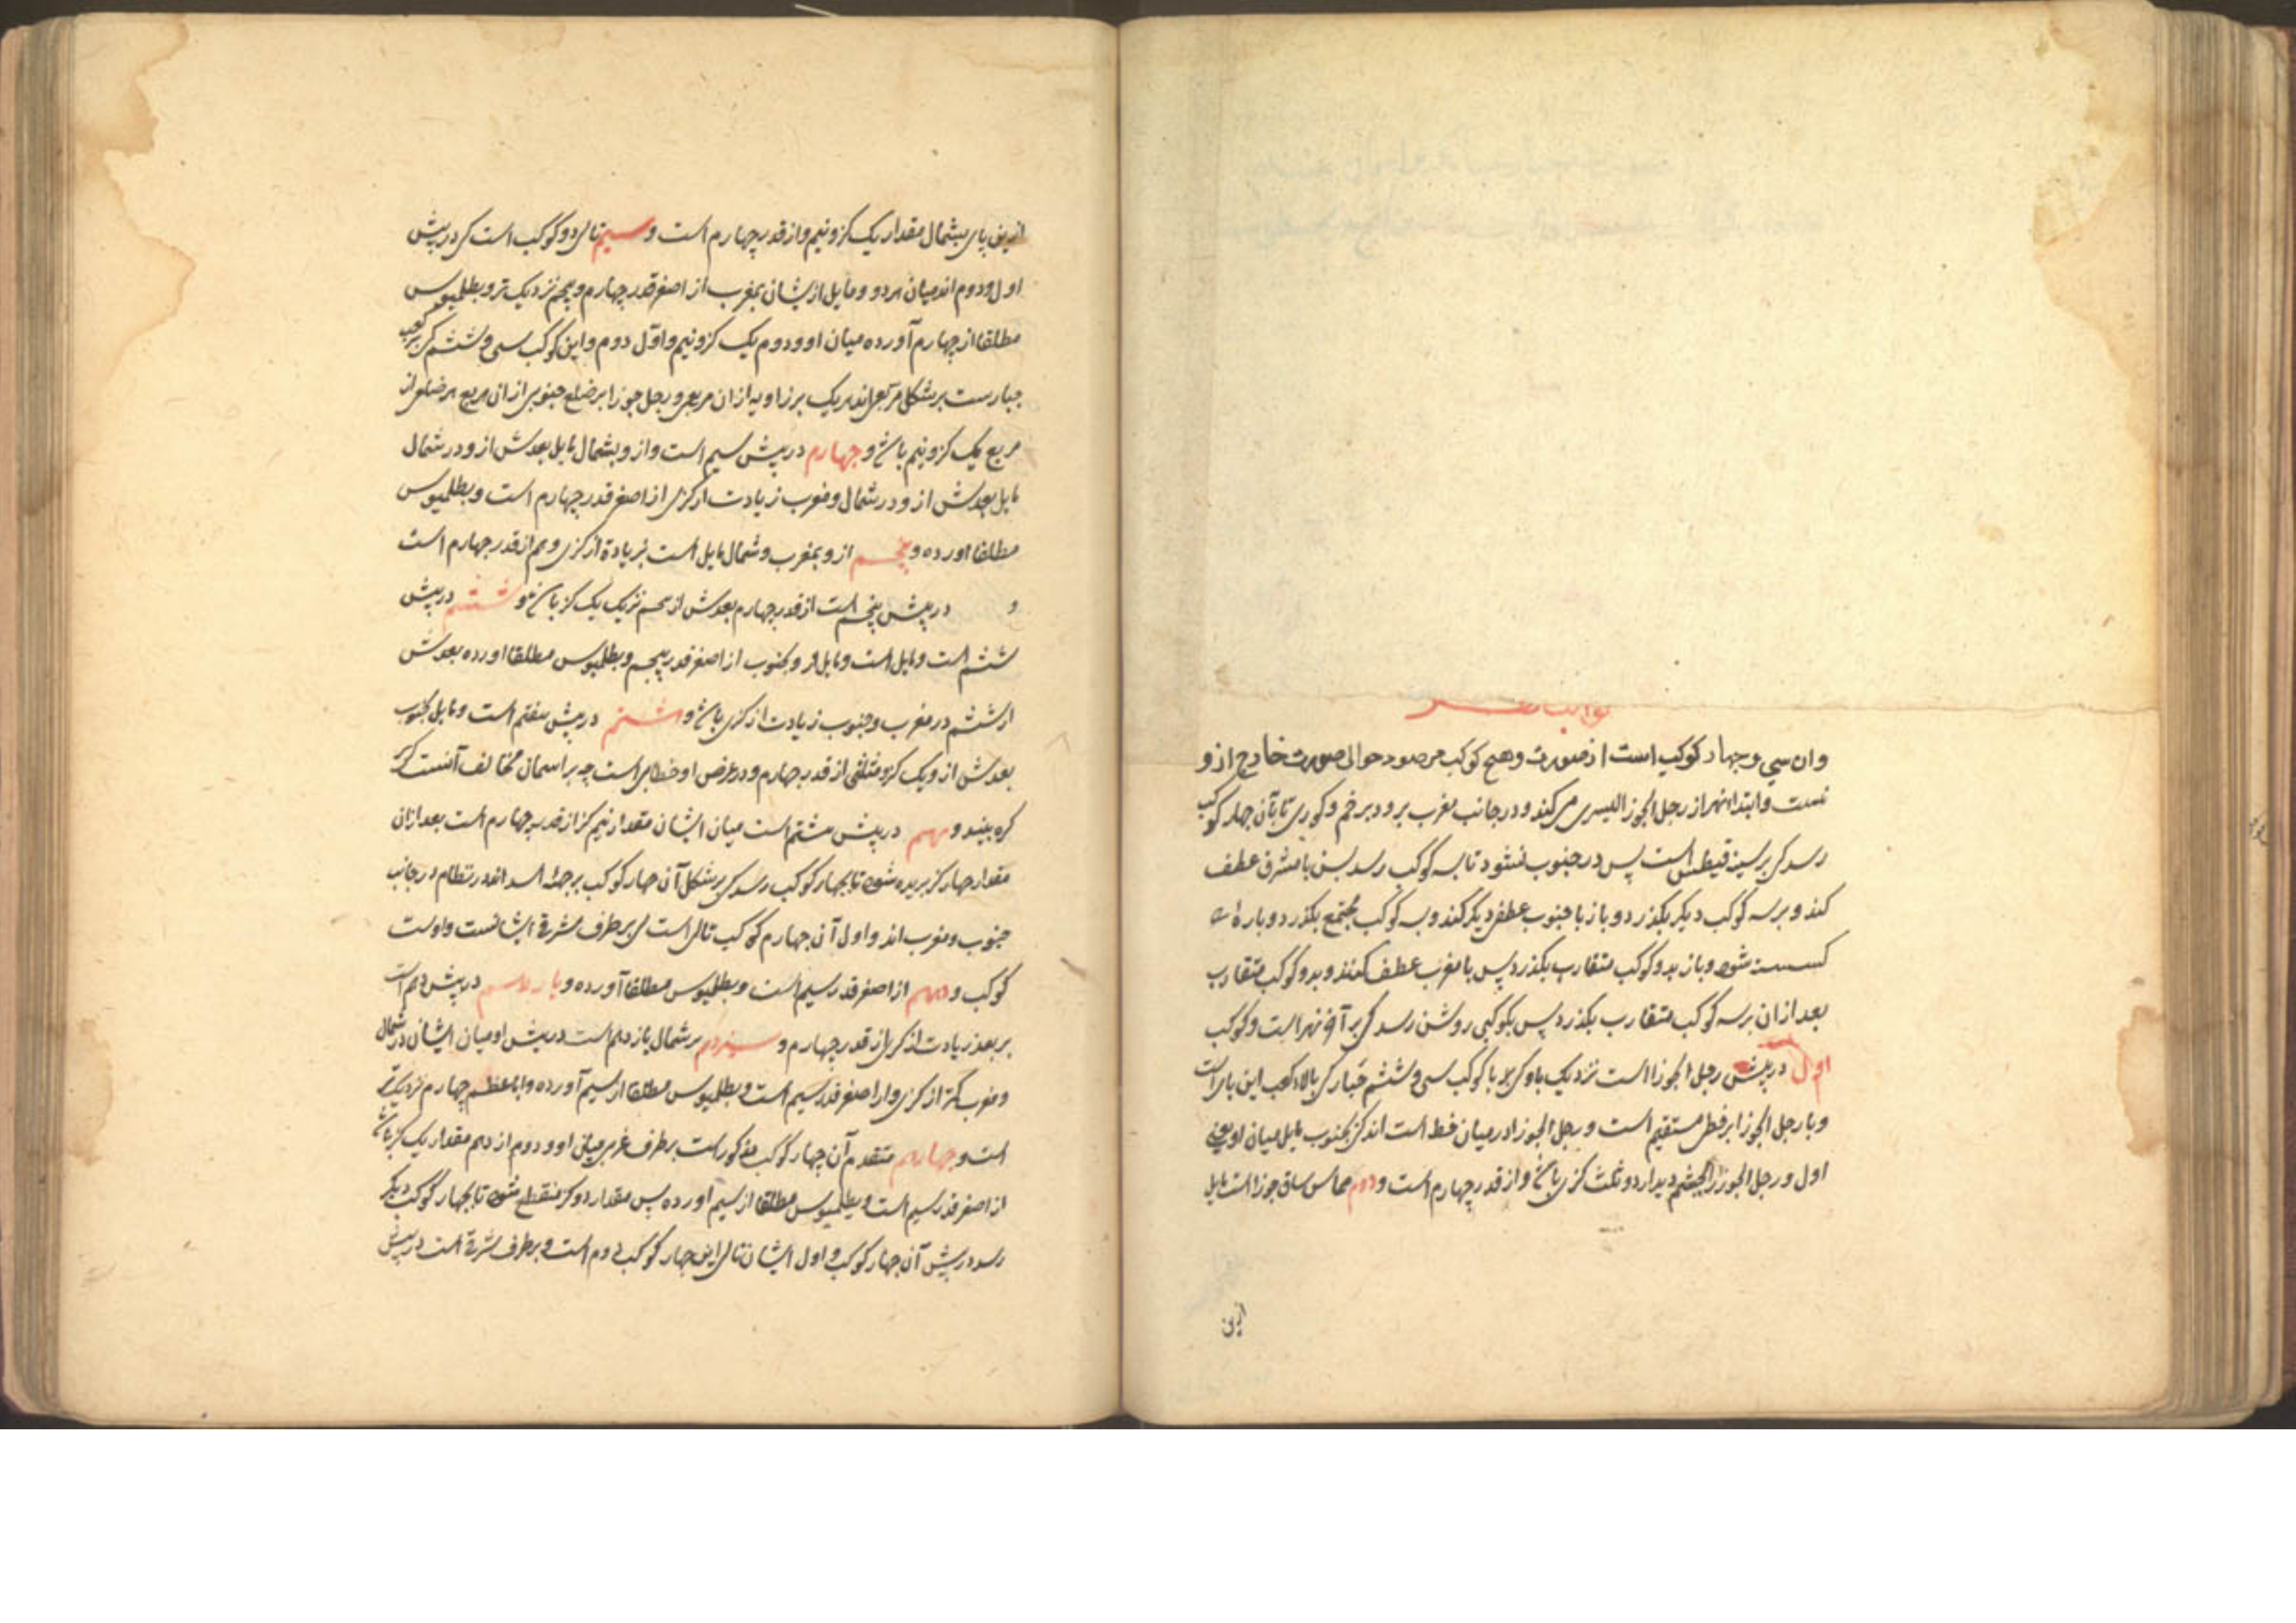 کواکب نهر
وان سی وچهار کوکب است از صورت وهیچ کوکب مرصود حوالی صورت خارج ازو
نیست وابتداء نهر از رجل الجوزا الیسری می کند ودر جانب مغرب برود برخم وکوری تا بآن چهار کوکب
رسد کی بر سینه قیطس است پس در جنوب شود تا بسه کوکب رسد پس با مشرق عطف
کند و بر سه کوکب دیکر بکذرد و باز با جنوب عطفی دیکر کند و بسه کوکب مجتمع بکذرد دوباره
کسسته شود و باز بدو کوکب متقارب بکذرد پس با مغرب عطف کند و بدو کوکب متقارب
بعد ازان بر سه کوکب متقارب بکذرد پس بکوکبی روشن رسد کی بر آخر نهر است و کوکب
اول در پیش رجل الجوزا است نزدیک باو کی با کوکب سی وششم جبار کی بالاء کعب این پای است
و با رجل الجوزا بر خطی مستقیم است و رجل الجوزا در میان خط است اندکی بجنوب مایل میان او یعنی
اول و رجل الجوزا بچشم دیدار دو ثلث کزی باشد و از قدر چهارم است و دوم مماس ساق جوزا است مایل
ازین
ازین پای بشمال مقدار یک کز ونیم و از قدر چهارم است و سیم تالی دو کوکب است کی در پیش
اول و دوم اند میان هر دو و مایل ازیشان بمغرب از اصغر قدر چهارم و پنجم نزدیک تر و بطلمیوس
مطلقا از چهارم آورده میان او و دوم یک کز ونیم و اول دوم و این کوکب سی وششم کی بر کعب
جبارست بر شکل مربعی اند هر یک بر زاویه ازان مربعی و رجل جوزا بر ضلع جنوبی ازان مربع هر ضلعی از
مربع یک کز ونیم باشد و چهارم در پیش سیم است و ازو بشمال مایل بعدش ازو در شمال
مایل بعدش ازو در شمال و مغرب زیادت از کزی از اصغر قدر چهارم است و بطلمیوس
مطلقا اورده و پنجم ازو بمغرب و شمال مایل است بزیادة از کزی و هم از قدر چهارم است
و در پیش پنجم است از قدر چهارم بعدش از پنجم نزدیک یک کز باشد و ششم در پیش
ششم است و مایل است و مایل و بجنوب از اصغر قدر پنجم و بطلمیوس مطلقا اورده بعدش
از ششم در مغرب و جنوب زیادت از کزی باشد و هشتم در پیش هفتم است و مایل بجنوب
بعدش ازو یک کز و ثلثی از قدر چهارم و در عرض او خطایی است چه بر اسمان مخالف آنست کی بر
کره بینند و نهم در پیش هشتم است میان ایشان مقدار نیم کز از قدر چهارم است بعد ازان
مقدار چهار کز بریده شود تا بچهار کوکب رسد کی بر شکل آن چهار کوکب بر جبهة الاسد اند در نظام در جانب
جنوب و مغرب اند و اول آن چهارم کوکب تالی است کی بر طرف شرقی ایشانست و اوست
کوکب و دهم از اصغر قدر سیم است و بطلمیوس مطلقا آورده و یازدهم در پیش دهم است
بر بعد زیادت از کزی از قدر چهارم و سیزدهم بر شمال یازدهم است در پیش او میان ایشان در شمال
و مغرب کمتر از کزی و از اصغر قدر سیم است و بطلمیوس مطلقا از سیم آورده و اما باعظم چهارم نزدیکتر
است و چهاردهم متقدم آن چهار کوکب مذکورست بر طرف غربی میان او و دوم از دهم مقدار یک کز باشد
از اصغر قدر سیم است و بطلمیوس مطلقا از سیم اورده پس مقدار دو کز منقطع شود تا بچهار کوکب دیکر
رسد در پیش آن چهار کوکب و اول ایشان تالی این چهار کوکب دوم است و بر طرف شرقی است در پیش